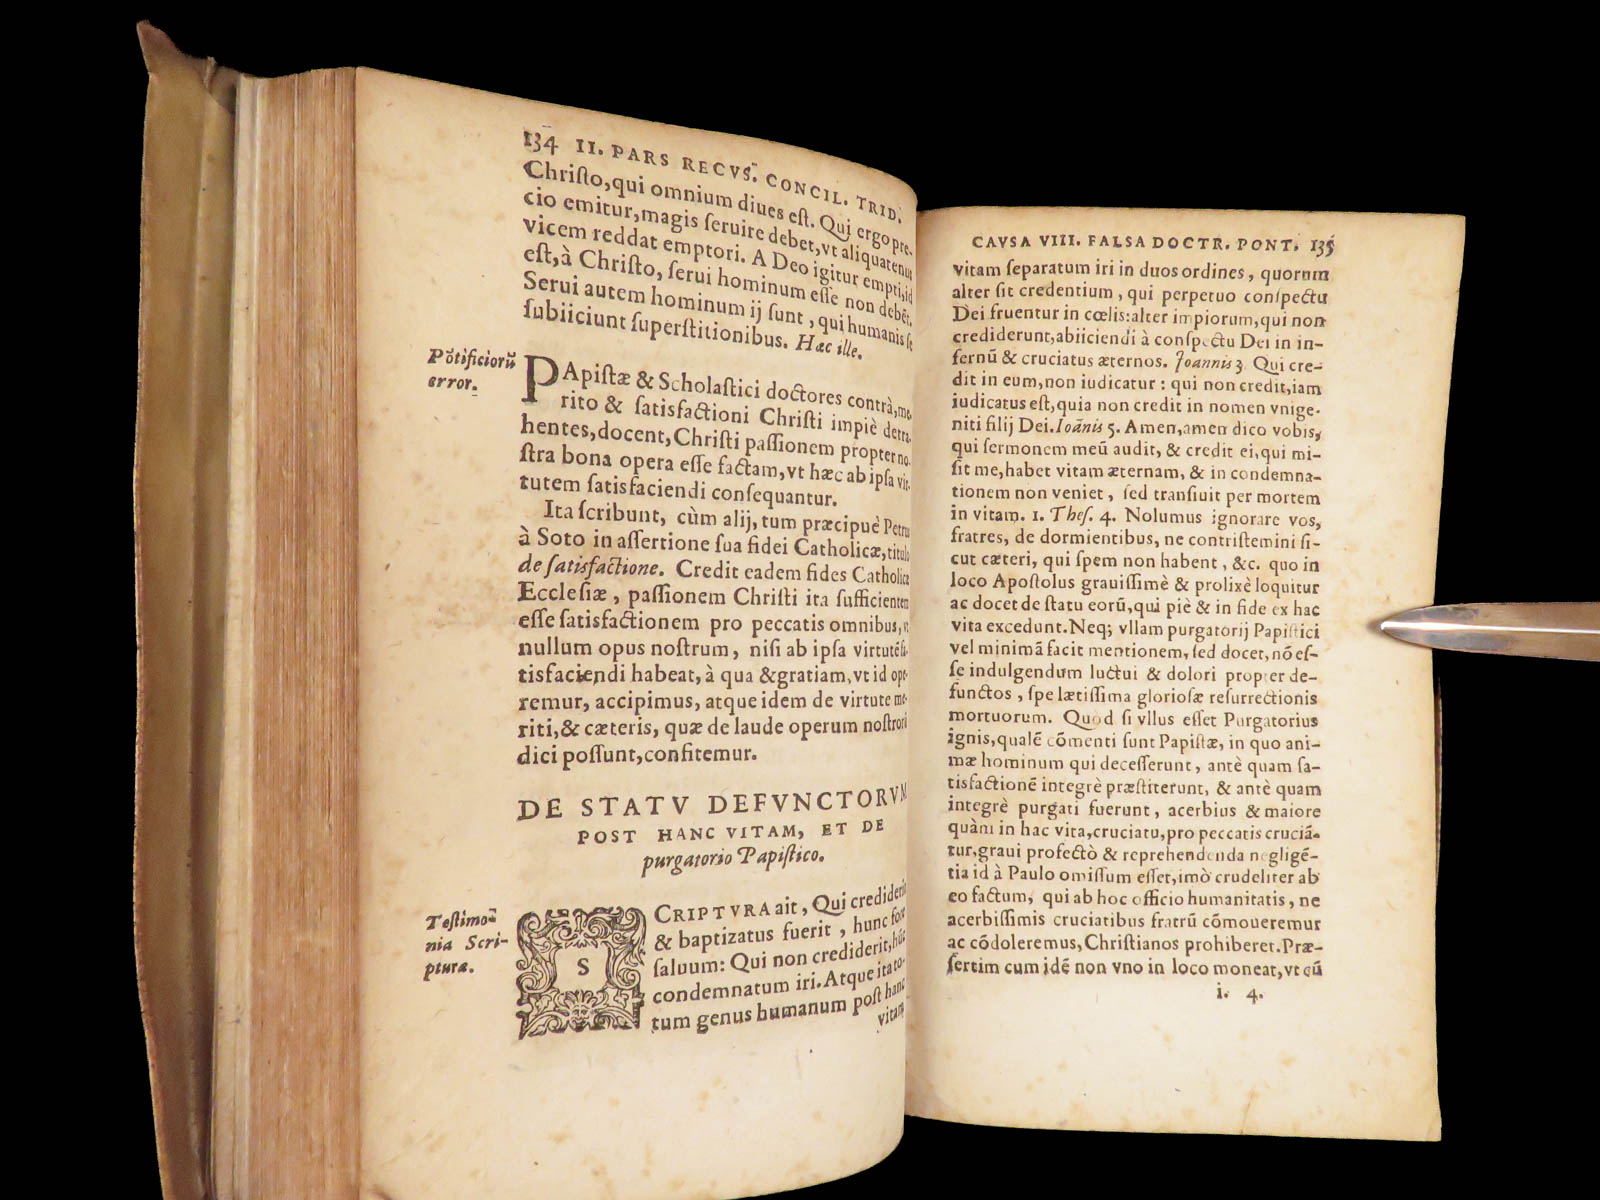 134 II. PARS RECVS. CONCIL. TRID.
Chriſto,qui omnium diues eſt. Qui ergo pre-
cio emitur,magis ſeruire debet,vt aliquatenus
vicem reddat emptori. A Deo igitur empti,id
eſt,à Chriſto, ſerui hominum eſſe non debēt.
Serui autem hominum ij ſunt, qui humanis ſe
ſubiiciunt ſuperſtitionibus. Hæc ille.
Põtificiorũ
error.
PApiſtæ & Scholaſtici doctores contrà,me-
rito & ſatisfactioni Chriſti impiè detra-
hentes,docent,Chriſti paſſionem propter no-
ſtra bona opera eſſe factam,vt hæc ab ipſa vir-
tutem ſatisfaciendi conſequantur.
Ita ſcribunt, cùm alij, tum præcipuè Petrus
à Soto in aſſertione ſua fidei Catholicæ,titulo
de ſatisfactione. Credit eadem fides Catholicæ
Eccleſiæ, paſſionem Chriſti ita ſufficientem
eſſe ſatisfactionem pro peccatis omnibus, vt
nullum opus noſtrum, niſi ab ipſa virtutē ſa-
tisfaciendi habeat, à qua &gratiam, vt id ope-
remur, accipimus, atque idem de virtute me-
riti,& cæteris, quæ de laude operum noſtrorũ
dici poſſunt,confitemur.
DE STATV DEFVNCTORVM
POST HANC VITAM, ET DE
purgatorio Papiſtico.
Teſtimo-
nia Scri-
pturæ.
SCRIPTVRA ait, Qui crediderit
& baptizatus fuerit, hunc fore
ſaluum: Qui non crediderit,hũc
condemnatum iri. Atque ita to-
tum genus humanum poſt hanc
vitam
CAVSA VIII. FALSA DOCTR. PONT. 135
vitam ſeparatum iri in duos ordines, quorum
alter ſit credentium, qui perpetuo conſpectu
Dei fruentur in cœlis:alter impiorum,qui non
crediderunt,abiiciendi à conſpectu Dei in in-
fernũ & cruciatus æternos. Joannis 3. Qui cre-
dit in eum,non iudicatur: qui non credit,iam
iudicatus eſt,quia non credit in nomen vnige-
niti filij Dei. Ioãnis 5. Amen,amen dico vobis,
qui ſermonem meũ audit, & credit ei,qui mi-
ſit me,habet vitam æternam, & in condemna-
tionem non veniet, ſed tranſiuit per mortem
in vitam. 1. Theſ. 4. Nolumus ignorare vos,
fratres, de dormientibus, ne contriſtemini ſi-
cut cæteri, qui ſpem non habent, &c. quo in
loco Apoſtolus grauiſſimè & prolixè loquitur
ac docet de ſtatu eorũ,qui piè & in fide ex hac
vita excedunt. Neq; vllam purgatorij Papiſtici
vel minimã facit mentionem, ſed docet,nõ eſ-
ſe indulgendum luctui & dolori propter de-
functos, ſpe lætiſſima glorioſæ reſurrectionis
mortuorum. Quod ſi vllus eſſet Purgatorius
ignis,qualē cõmenti ſunt Papiſtæ, in quo ani-
mæ hominum qui deceſſerunt, antè quam ſa-
tisfactionē integrè præſtiterunt, & antè quam
integrè purgati fuerunt, acerbius & maiore
quàm in hac vita,cruciatu,pro peccatis cruciã-
tur,graui profectò & reprehendenda negligē-
tia id à Paulo omiſſum eſſet,imò crudeliter ab
eo factum, qui ab hoc officio humanitatis, ne
acerbiſſimis cruciatibus fratrũ cõmoueremur
ac cõdoleremus,Chriſtianos prohiberet. Præ-
ſertim cum idē non vno in loco moneat,vt cũ
i. 4.